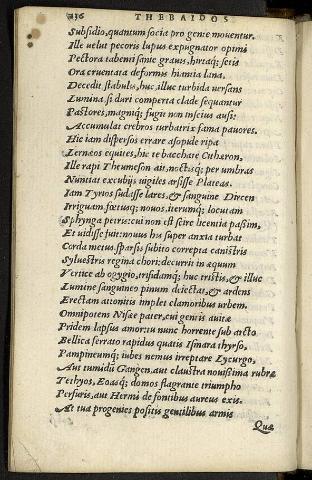 136 THEBAIDOS
Subsidio, quantum socia pro gente mouentur.
Ille velut pecoris lupus expugnator opimi
Pectora tabenti sanie grauis, hirtaq; setis
Ora cruentata deformis hiantia lana,
Decedit stabulis, huc, illuc turbida versans
Lumina, si duri comperta clade sequantur
Pastores, magniq; fugit non inscius ausi:
Accumulat crebros turbatrix fama pauores.
Hic iam dispersos errare asopide ripa
Lernæos equites, hic te bacchate Cithæron,
Ille rapi Theumeson ait, noctisq; per umbras
Nuntiat excubijs vigiles arsisse Plateas.
Iam Tyrios sudasse lares, & sanguine Dircen
Irriguam, fœtusq; nouos, iterumq; locutam
Sphynga petris: cui non est scire licentia passim,
Et vidisse fuit: nouus his super anxia turbat
Corda metus: sparsis subito correpta canistris
Syluestris regina chori: decurrit in æquum
Vertice ab ogygio, trifidamq; huc tristis, & illuc
Lumine sanguineo pinum deiectat, & ardens
Erectam attonitis implet clamoribus urbem.
Omnipotens Nisæe pater, cui gentis auitæ
Pridem lapsus amor: tu nunc horrente sub arcto
Bellica ferrato rapidus quatis Ismara thyrso,
Pampineumq; iubes nemus irreptare Lycurgo,
Aut tumidū Gangen, aut claustra nouissima rubræ
Tethyos, Eoasq; domos flagrante triumpho
Perfuris, aut Hermi de fontibus aureus exis.
At tua progenies positis gentilibus armis
Quæ